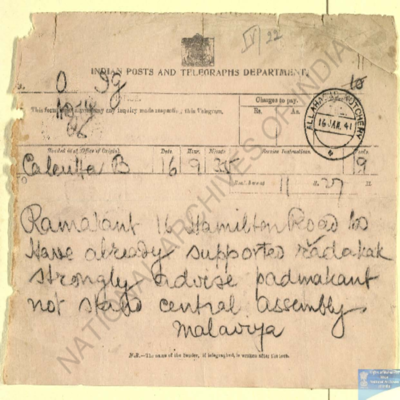 IV/22
INDIAN POSTS AND TELEGRAPHS DEPARTMENT.
Charges to pay.
Rs. As.
This form must accompany any inquiry made respecting this Telegram.
ALLAHABAD KUTCHERY
16 JAN. 41
Handed in at (Office of Origin). Date Hour Minute Service Instructions Words.
Calcutta B 16 9 35 19
11 27
Ramakant 16 Hamilton Road
Have already supported
strongly advise padmakant
not stand central assembly
Malaviya
N.B.—The name of the Sender, if telegraphed, is written after the text.
NATIONAL ARCHIVES OF INDIA